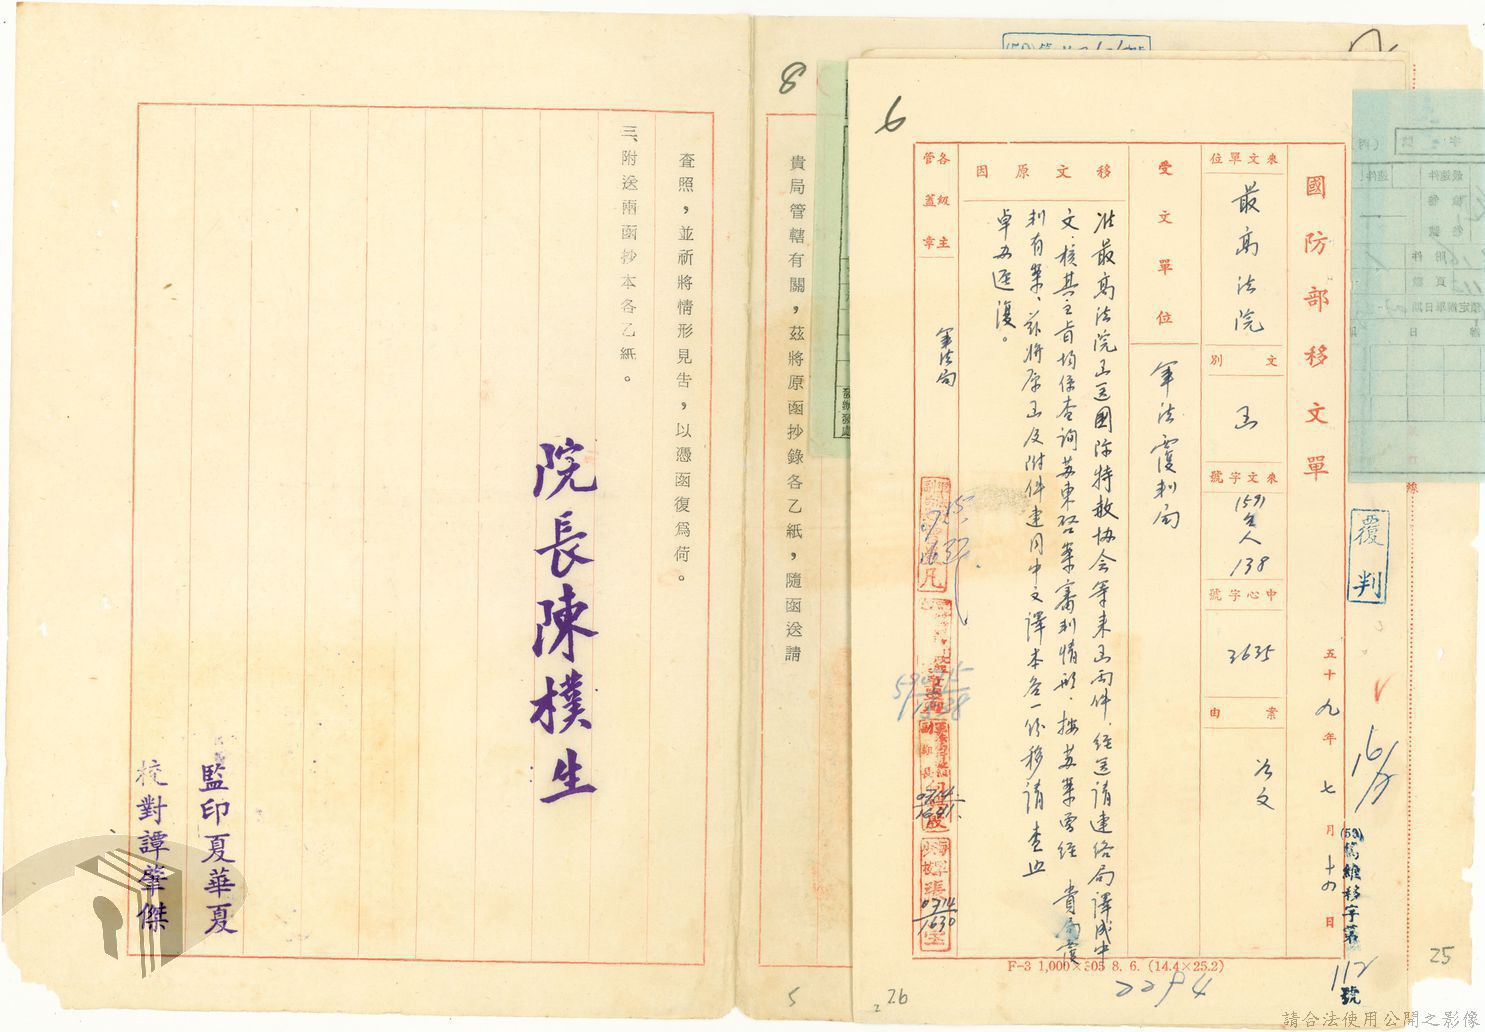 國防部移文單
五十九年七月十四日
(59)篤維移字第112號
來文單位
最高法院
文別
函
來文字號
1591
138
中心字號
3635
案由
次文
受文單位
軍法覆判局
移文原因
准最高法院函送國際特赦協會等來函兩件，經送請連絡局譯成中
文，核其主旨均係查詢蘇東啓案審判情形，按蘇案曾經 貴局覆
判有案，茲將原函及附件連同中文譯本各一份移請查照
卓辦逕復。
各級主管蓋章
軍法局
0714
1630
F-3 1,000×305 8. 6. (14.4×25.2)
2294
覆判
6
8
25
26
5
貴局管轄有關，茲將原函抄錄各乙紙，隨函送請
查照，並祈將情形見告，以憑函復為荷。
三、附送兩函抄本各乙紙。
院長陳樸生
監印夏華夏
校對譚肇傑
請合法使用公開之影像